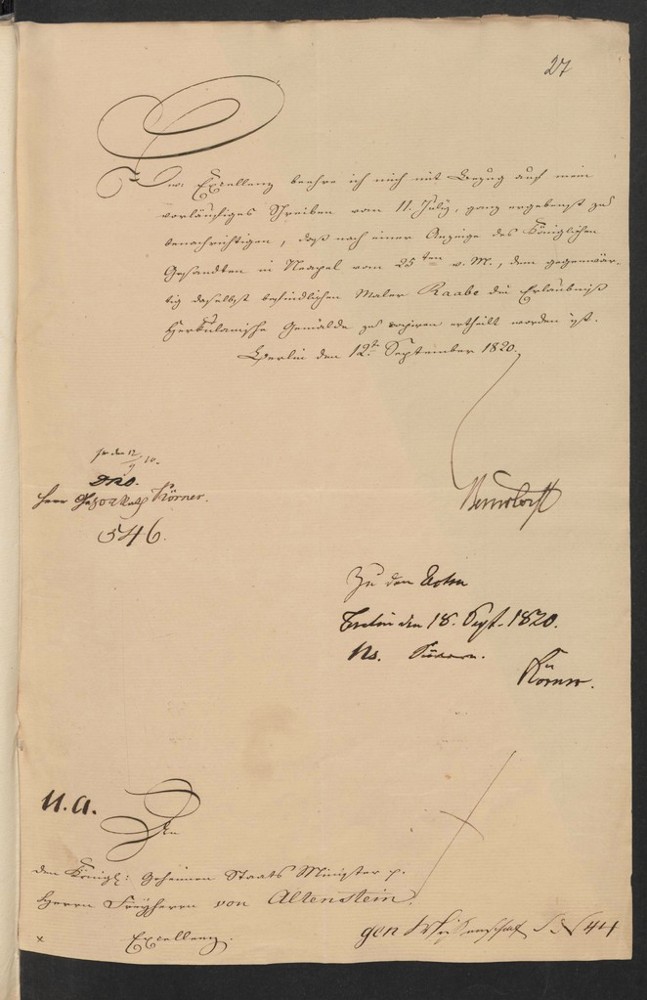 27
Ew. Excellenz beehre ich mich mit Bezug auf mein
vorläufiges Schreiben vom 11. July, ganz ergebenst zu
benachrichtigen, daß nach einer Anzeige des Königlichen
Gesandten in Neapel vom 25ten v. M., dem gegenwär-
tig daselbst befindlichen Maler Raabe die Erlaubniß
Herkulanische Gemälde zu copiren ertheilt worden ist.
Berlin den 12ten September 1820.
Bernstorff
Herr Körner.
546.
Zu den Acten
Berlin den 18. Sept. 1820.
Körner.
U.A.
An
den Königl: Geheimen Staats Minister p.
Herrn Freyherrn von Altenstein
Excellenz.
44